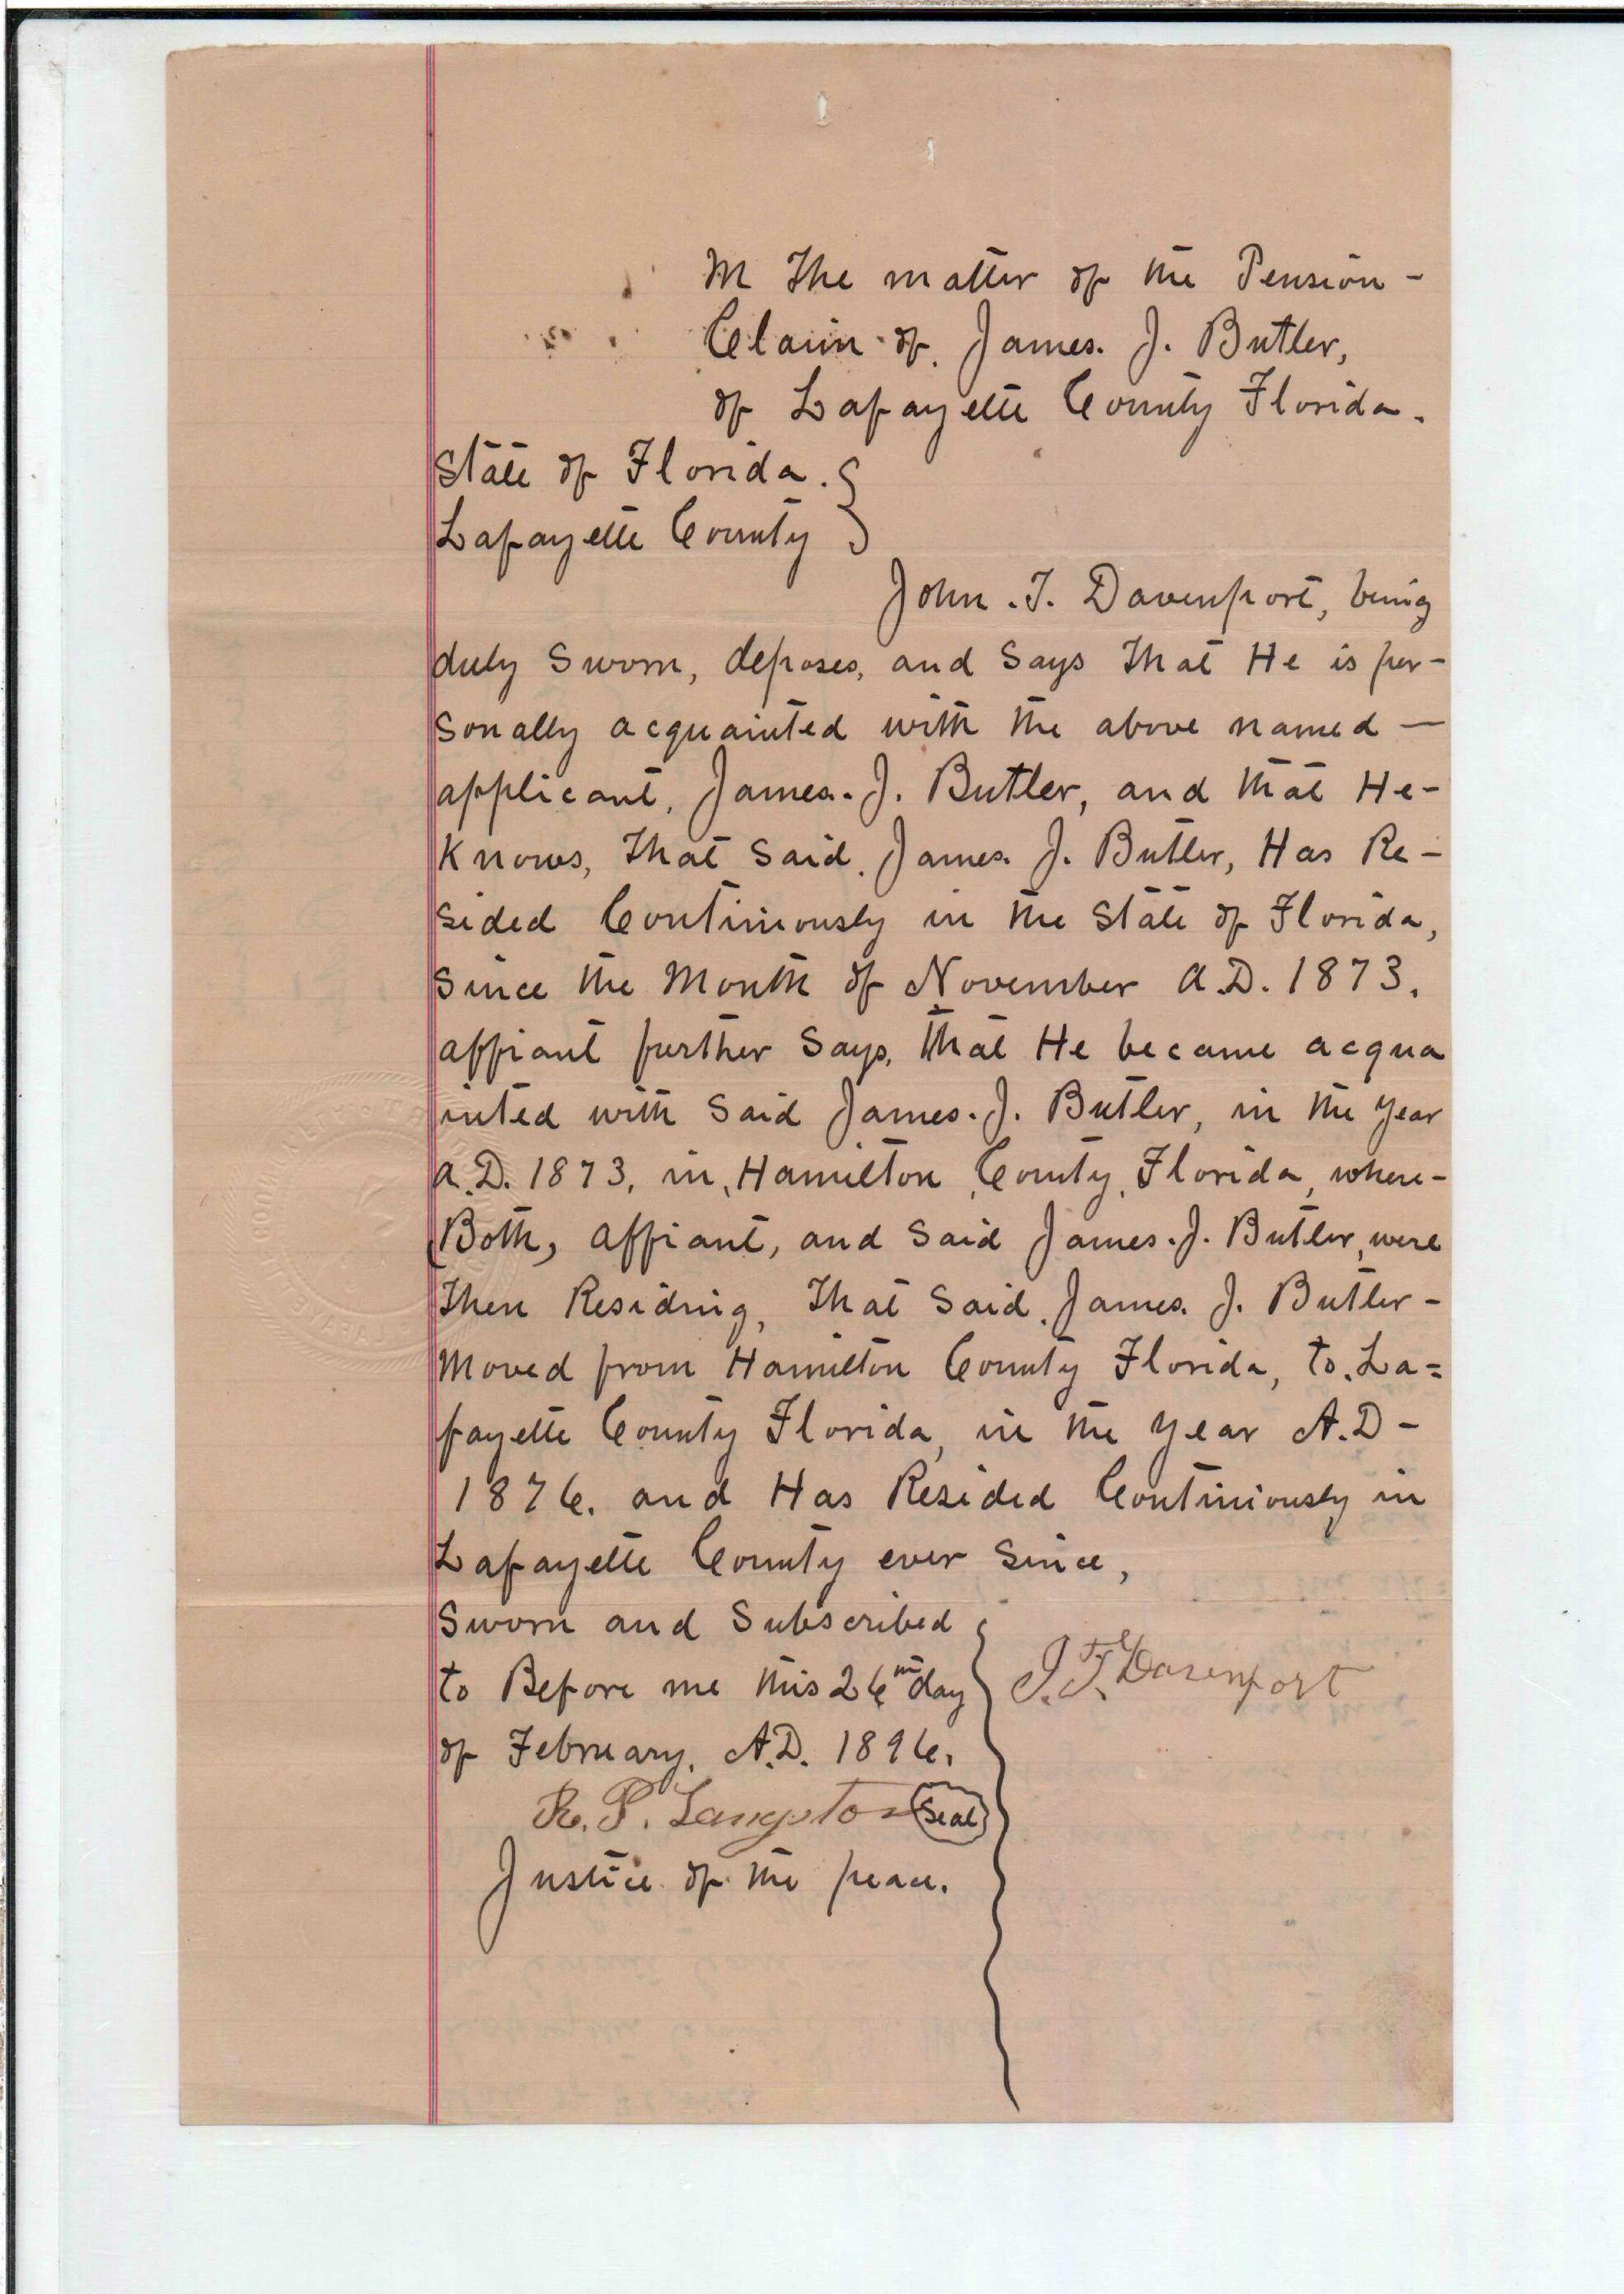 In The matter of the Pension -
Claim of James. J. Butler,
of Lafayette County Florida.
State of Florida. }
Lafayette County }
John. T. Davenport, being
duly Sworn, deposes, and Says That He is per-
sonally acquainted with the above named —
applicant, James. J. Butler, and that He-
Knows, That Said, James. J. Butler, Has Re-
sided Continiously in the State of Florida,
Since the Month of November A.D. 1873.
affiant further Says, that He became acqua
inted with Said James. J. Butler, in the year
A.D. 1873, in, Hamilton, County, Florida, where-
Both, affiant, and Said James. J. Butler, were
Then Residing, That Said, James. J. Butler-
Moved from Hamilton County Florida, to. La=
fayette County Florida, in the year A.D-
1876. and Has Resided Continiously in
Lafayette County ever Since,
Sworn and Subscribed
to Before me this 26th day
J. T. Davenport
of February, A.D. 1896.
R. P. Langston Seal
Justice of the peace.